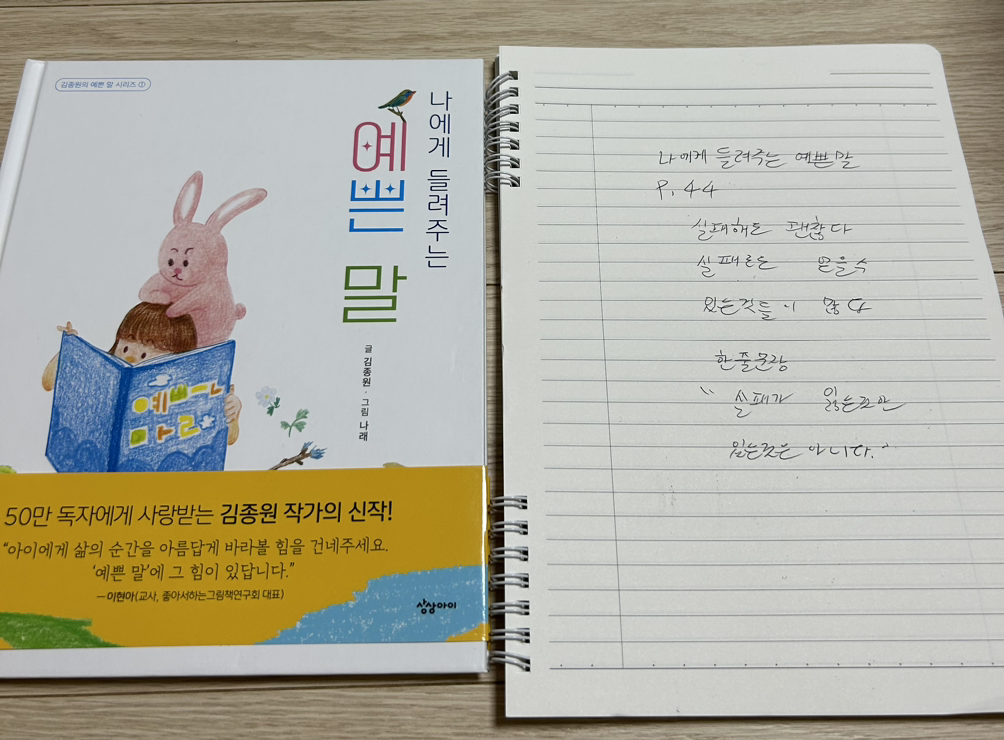 김종원의 예쁜 말 시리즈 ①
나에게 들려주는
예쁜 말
글 김종원 · 그림 나래
예쁘ㄴ
마ㄹ
50만 독자에게 사랑받는 김종원 작가의 신작!
“아이에게 삶의 순간을 아름답게 바라볼 힘을 건네주세요.
‘예쁜 말’에 그 힘이 있답니다.”
—이현아(교사, 좋아서하는그림책연구회 대표)
상상아이
나에게 들려주는 예쁜말
P. 44
실패해도 괜찮다
실패로는 얻을수
있는것들이 많다
한줄문장
"실패가 잃는것만
있는것은 아니다."